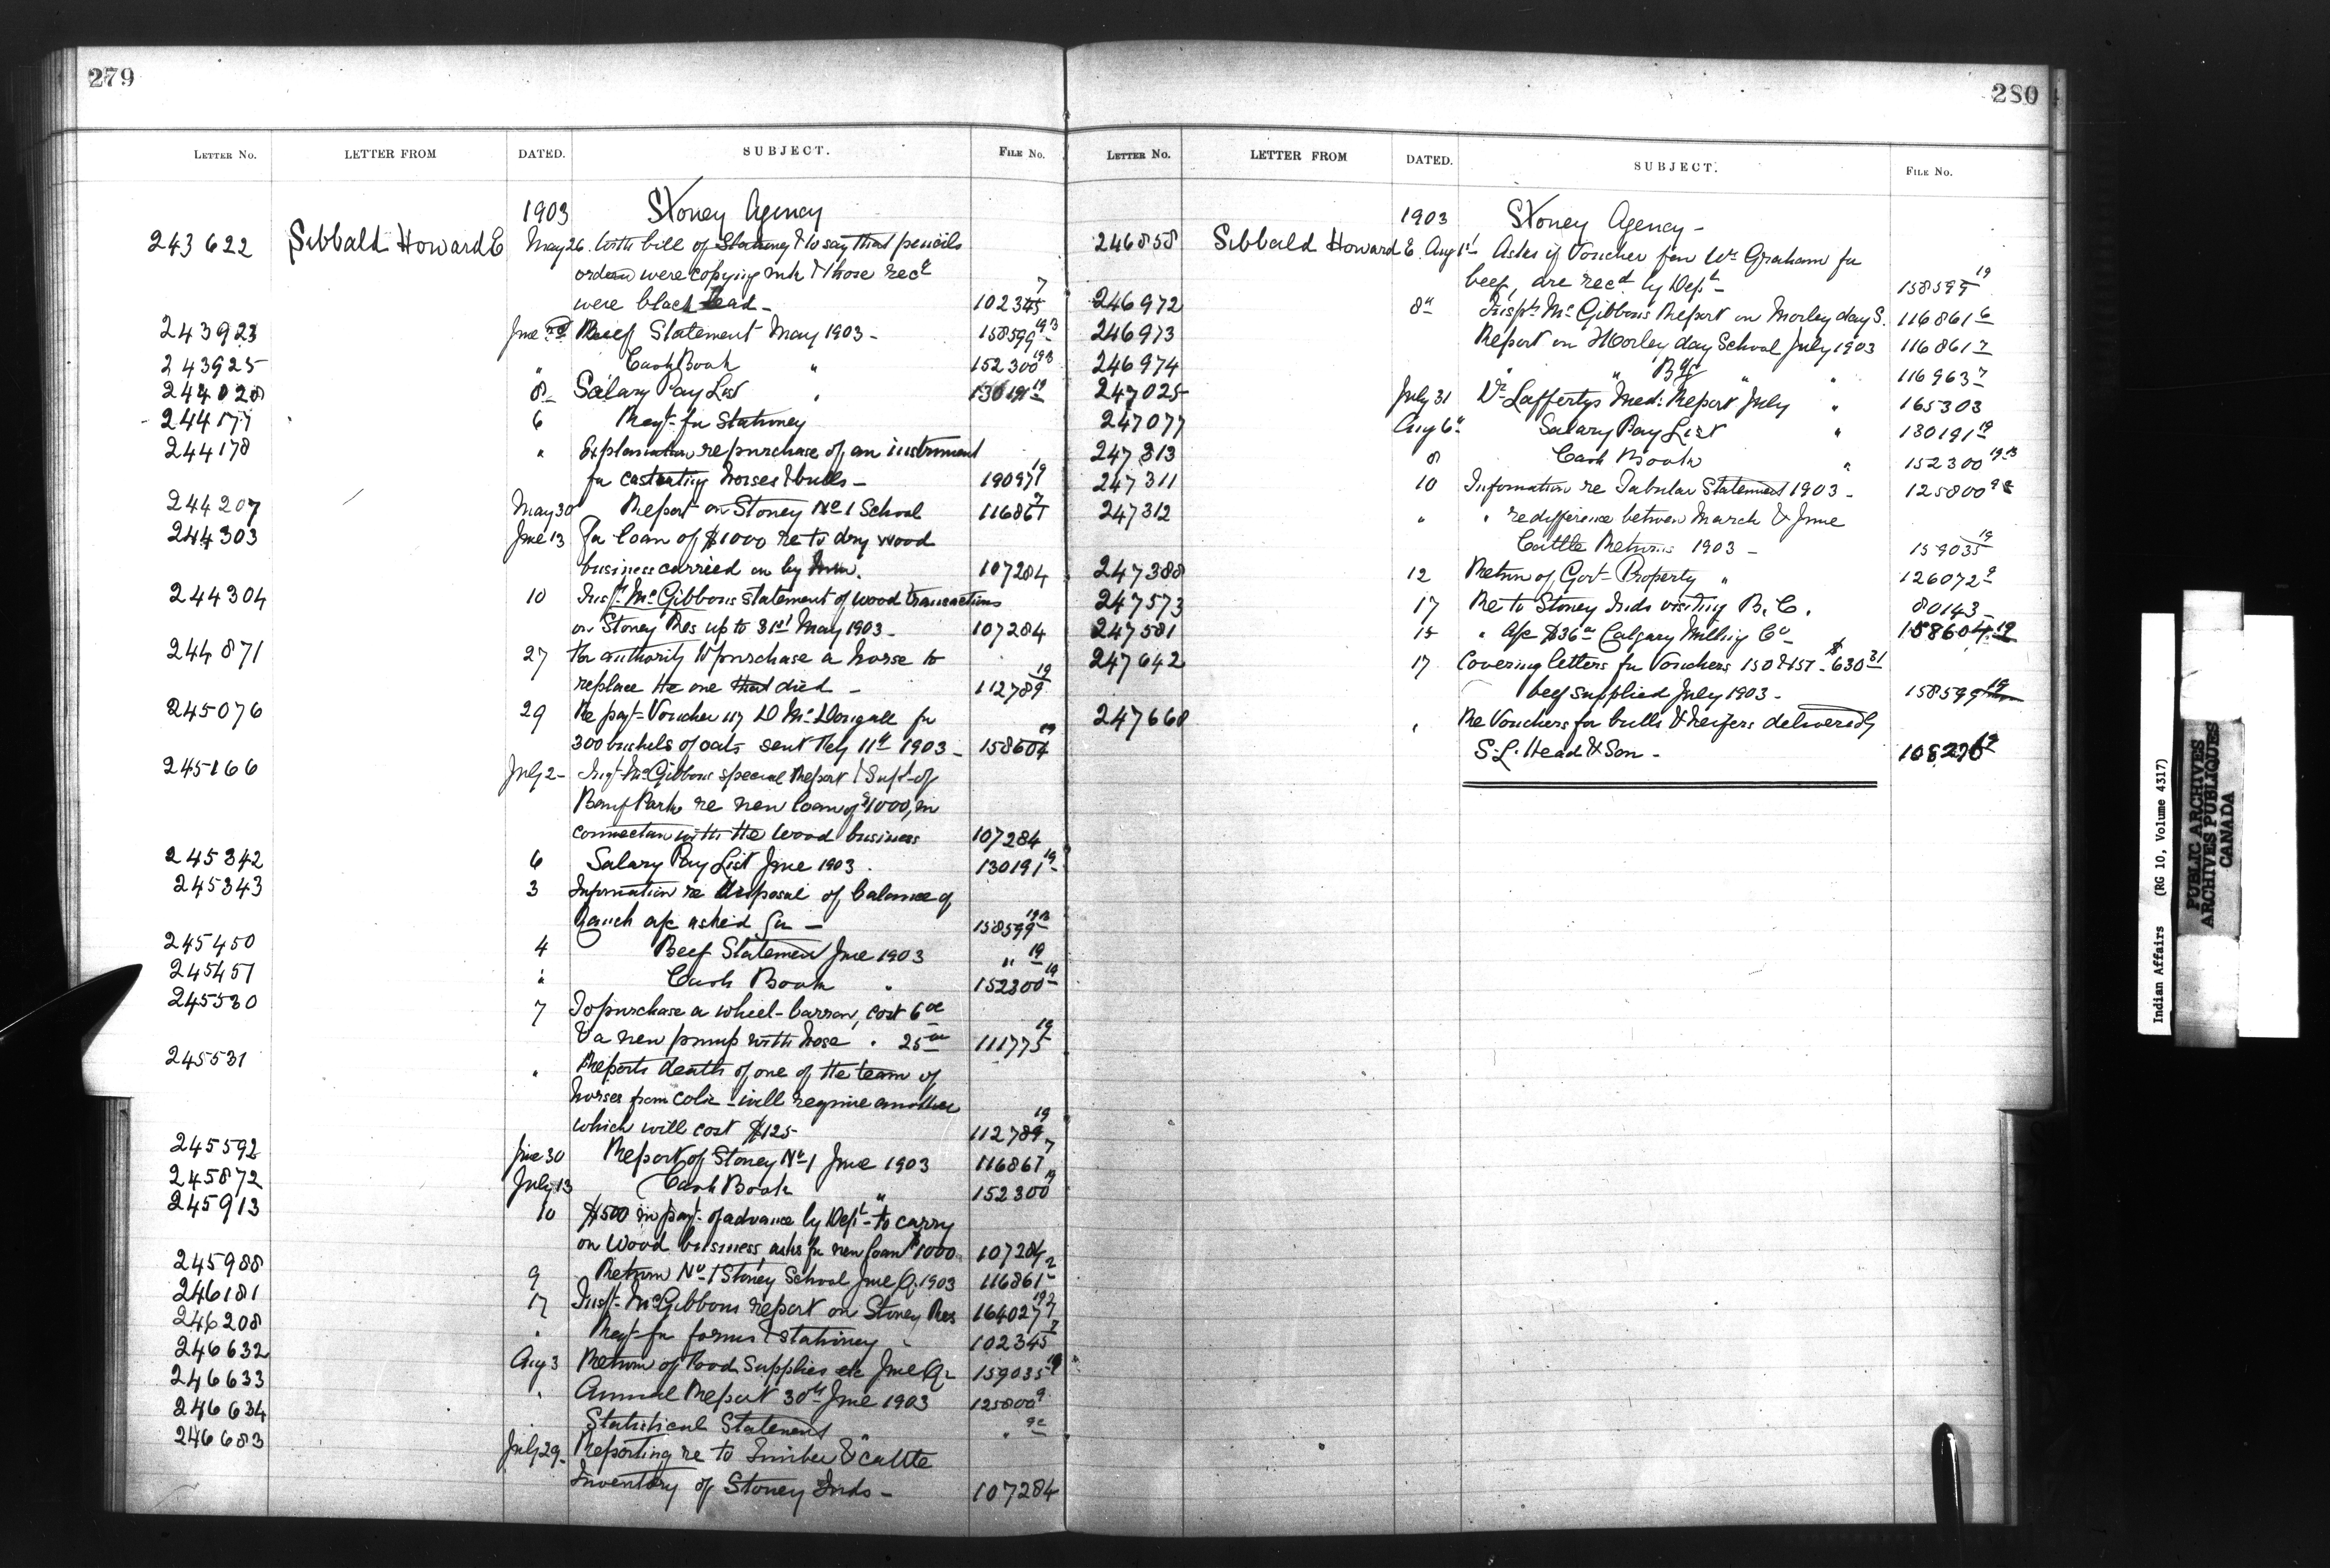 279
LETTER NO. LETTER FROM DATED. SUBJECT. FILE NO.
1903 Stoney Agency
243622 Sibbald Howard E May 26. With bill of Stationery & to say that pencils
ordered were copying ink & those recd
were black lead - 102345 7
243923 June Beef Statement May 1903 - 158599 19B
243925 " Cash Book " 152300 19B
244028 8 Salary Pay List " 130191 19
244177 6 Reqt. for Stationery
244178 " Explanation re purchase of an instrument
for castrating horses & bulls - 190971 19
244207 May 30 Report on Stoney No 1 School 116861 7
244303 June 13 For loan of $1000 re to dry wood
business carried on by 107284
244304 10 Inspr. McGibbons statement of wood transactions
on Stoney Res up to 31st May 1903 - 107284
244871 27 For authority to purchase a horse to
replace the one that died - 112789 19
245076 29 Re payt. Voucher 117 D McDougall for
300 bushels of oats sent May 11th 1903 - 158604 19
245166 July 2 - Inspt. McGibbons special Report & Supt. of
Banff Park re new loan of $1000, in
connection with the wood business 107284
245342 6 Salary Pay List June 1903. 130191 19
245343 3 Information re disposal of balance of
Ranch a/c asked for - 158599 19B
245450 4 Beef Statement June 1903 " 19
245451 " Cash Book " 152300 19
245530 7 To purchase a wheel-barrow, cost 6 00
& a new pump with hose " 25 00 111775 19
245531 " Reports death of one of the team of
horses from colic - will require another
which will cost $125 - 112789 19
245592 June 30 Report of Stoney No 1 June 1903 116861 7
245872 July 13 Cash Book " 152300 19
245913 10 $500 in payt. of advance by Dept. to carry
on Wood business, asks for new loan $1000 107284
245988 9 Return No 1 Stoney School June Q. 1903 116861 2
246181 17 Inspt. McGibbons report on Stoney Res 164027
246208 " Reqt. for forms & stationery - 102345 7
246632 Aug 3 Return of Food Supplies etc June Qr 159035 19
246633 " Annual Report 30th June 1903 125800 9
246634 " Statistical Statement " " 9c
246683 July 29 - Reporting re to Timber & Cattle
Inventory of Stoney Inds - 107284
280
LETTER NO. LETTER FROM DATED. SUBJECT. FILE NO.
1903 Stoney Agency -
246858 Sibbald Howard E. Aug 1st Asks if Voucher for Wm Graham for
beef, are recd by Dept - 158599 19
246972 8th Inspt. McGibbons Report on Morley day S. 116861 6
246973 Report on Morley day School July 1903 116861 7
246974 " " " " 116963 7
247025 July 31 Dr. Laffertys Med: Report July " 165303
247077 Aug 6th Salary Pay List " 130191 19
247313 8 Cash Book " 152300 19B
247311 10 Information re Tabular Statement 1903 - 125800
247312 " " re difference between March & June
Cattle Returns 1903 - 159035 19
247388 12 Return of Govt. Property " 126072 9
247573 17 Re to Stoney Inds visiting B.C. 80143 -
247581 15 " a/c $36 00 Calgary Milling Co 158604 19
247642 17 Covering letters for Vouchers 150 & 151 - $630 31
beef supplied July 1903 - 158599 19
247668 " Re Vouchers for bulls & heifers delivered by
S.L. Head & Son -
Indian Affairs (RG 10, Volume 4317)
PUBLIC ARCHIVES
ARCHIVES PUBLIQUES
CANADA